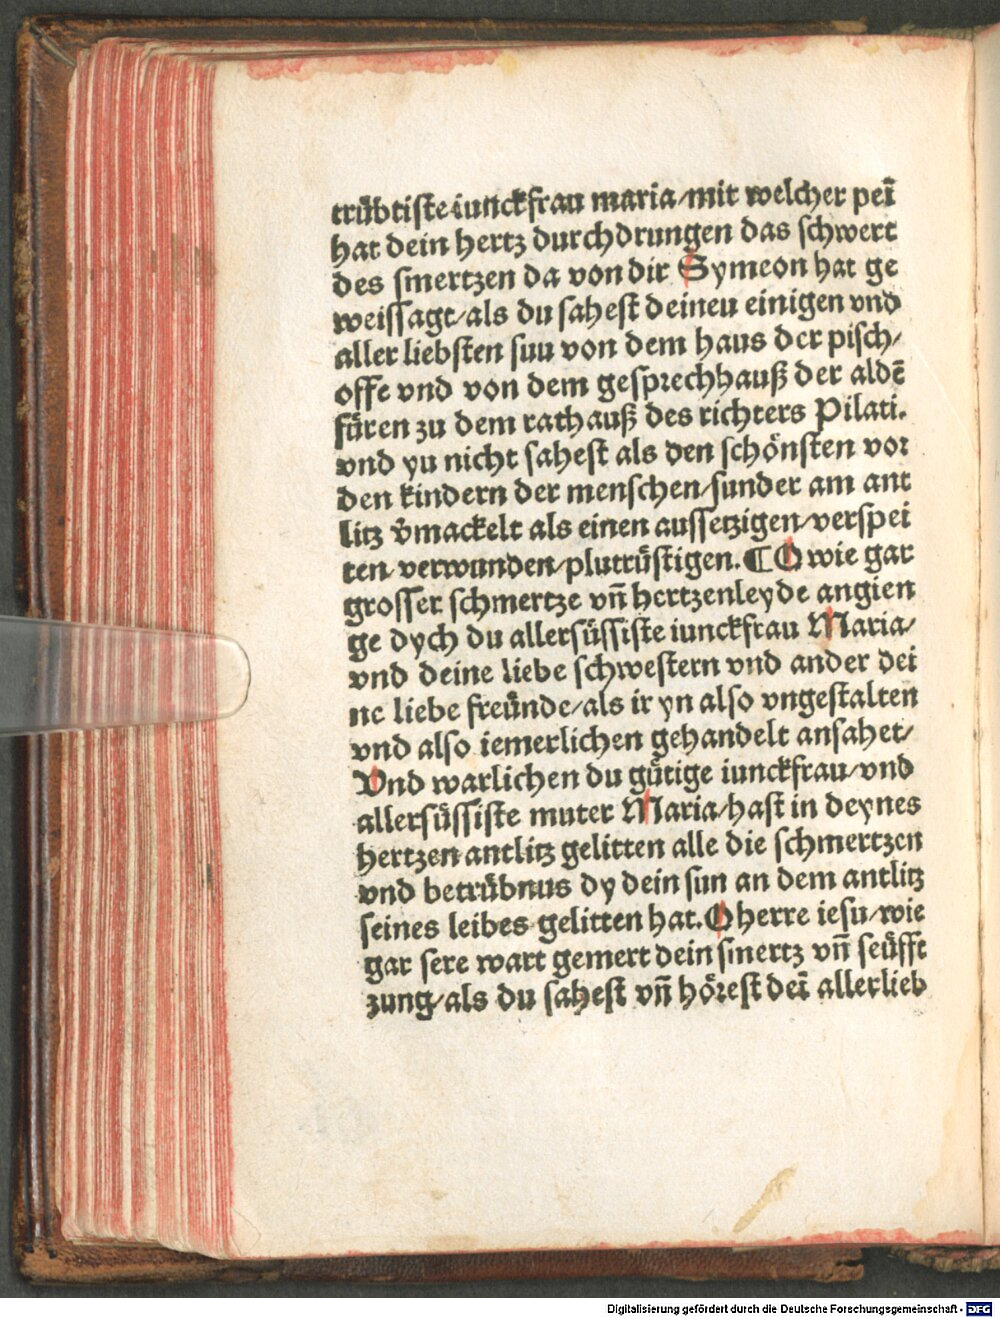 trübtiste iunckfrau maria/mit welcher peī
hat dein hertz durchdrungen das schwert
des smertzen da von dir Symeon hat ge
weissagt/als du sahest deineu einigen vnd
aller liebsten suu von dem haus der pisch/
offe vnd von dem gesprechhauß der aldē
füren zu dem rathauß des richters Pilati.
vnd yu nicht sahest als den schönsten vor
den kindern der menschen/sunder am ant
litz v̄mackelt als einen aussetzigen/verspei
ten/verwunden/plutrüstigen. ¶ O wie gar
grosser schmertze vn̄ hertzenleyde angien
ge dych du allersüssiste iunckfrau Maria/
vnd deine liebe schwestern vnd ander dei
ne liebe freünde/als ir yn also vngestalten
vnd also iemerlichen gehandelt ansahet/
Vnd warlichen du gütige iunckfrau/vnd
allersüssiste muter Maria/hast in deynes
hertzen antlitz gelitten alle die schmertzen
vnd betrübnus dy dein sun an dem antlitz
seines leibes gelitten hat. O herre iesu/wie
gar sere wart gemert dein smertz vn̄ seüfft
zung/als du sahest vn̄ hörest deī allerlieb
Digitalisierung gefördert durch die Deutsche Forschungsgemeinschaft - DFG